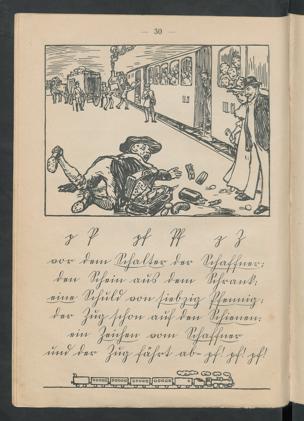 — 30 —
p P pf Pf z Z
vor dem Schalter der Schaffner;
den Schein aus dem Schrank;
eine Schuld von siebzig Pfennig;
der Zug schon auf den Schienen;
ein Zeichen vom Schaffner
und der Zug fährt ab- pf! pf! pf!